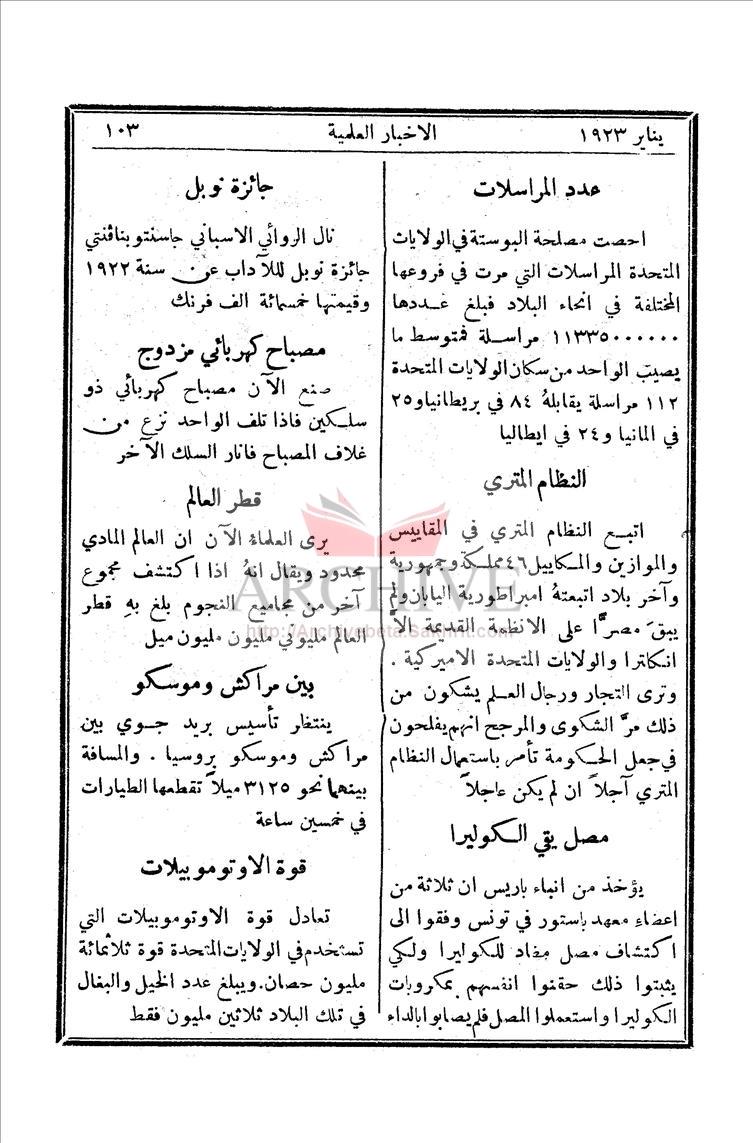 يناير ١٩٢٣ الاخبار العلمية ١٠٣
عدد المراسلات
احصت مصلحة البوستة في الولايات
المتحدة المراسلات التي مرت في فروعها
المختلفة في انحاء البلاد فبلغ عددها
١١٣٣٥٠٠٠٠٠٠ مراسلة فمتوسط ما
يصيب الواحد من سكان الولايات المتحدة
١١٢ مراسلة يقابلهُ ٨٤ في بريطانيا و٢٥
في المانيا و٢٤ في ايطاليا
النظام المتري
اتبع النظام المتري في المقاييس
والموازين والمكاييل ٤٦ مملكة وجمهورية
وآخر بلاد اتبعتهُ امبراطورية اليابان ولم
يبقَ مصرًّا على الانظمة القديمة الاَّ
انكلترا والولايات المتحدة الاميركية .
وترى التجار ورجال العلم يشكون من
ذلك مرَّ الشكوى والمرجح انهم يفلحون
في جعل الحكومة تأمر باستعمال النظام
المتري آجلاً ان لم يكن عاجلاً
مصل يقي الكوليرا
يؤخذ من انباء باريس ان ثلاثة من
اعضاء معهد باستور في تونس وفقوا الى
اكتشاف مصل مضاد للكوليرا ولكي
يثبتوا ذلك حقنوا انفسهم بمكروبات
الكوليرا واستعملوا المصل فلم يصابوا بالداء
جائزة نوبل
نال الروائي الاسباني جاسنتو بناڤنتي
جائزة نوبل للآداب عن سنة ١٩٢٢
وقيمتها خمسمائة الف فرنك
مصباح كهربائي مزدوج
صنع الآن مصباح كهربائي ذو
سلكين فاذا تلف الواحد نزع من
غلاف المصباح فانار السلك الآخر
قطر العالم
يرى العلماءُ الآن ان العالم المادي
محدود ويقال انهُ اذا اكتشف مجموع
آخر من مجاميع النجوم بلغ بهِ قطر
العالم مليوني مليون مليون ميل
بين مراكش وموسكو
ينتظر تأسيس بريد جوي بين
مراكش وموسكو بروسيا . والمسافة
بينهما نحو ٣١٢٥ ميلاً تقطعها الطيارات
في خمسين ساعة
قوة الاوتوموبيلات
تعادل قوة الاوتوموبيلات التي
تستخدم في الولايات المتحدة قوة ثلاثمائة
مليون حصان. ويبلغ عدد الخيل والبغال
في تلك البلاد ثلاثين مليون فقط
ARCHIVE
http://Archivebeta.Sakhrit.com